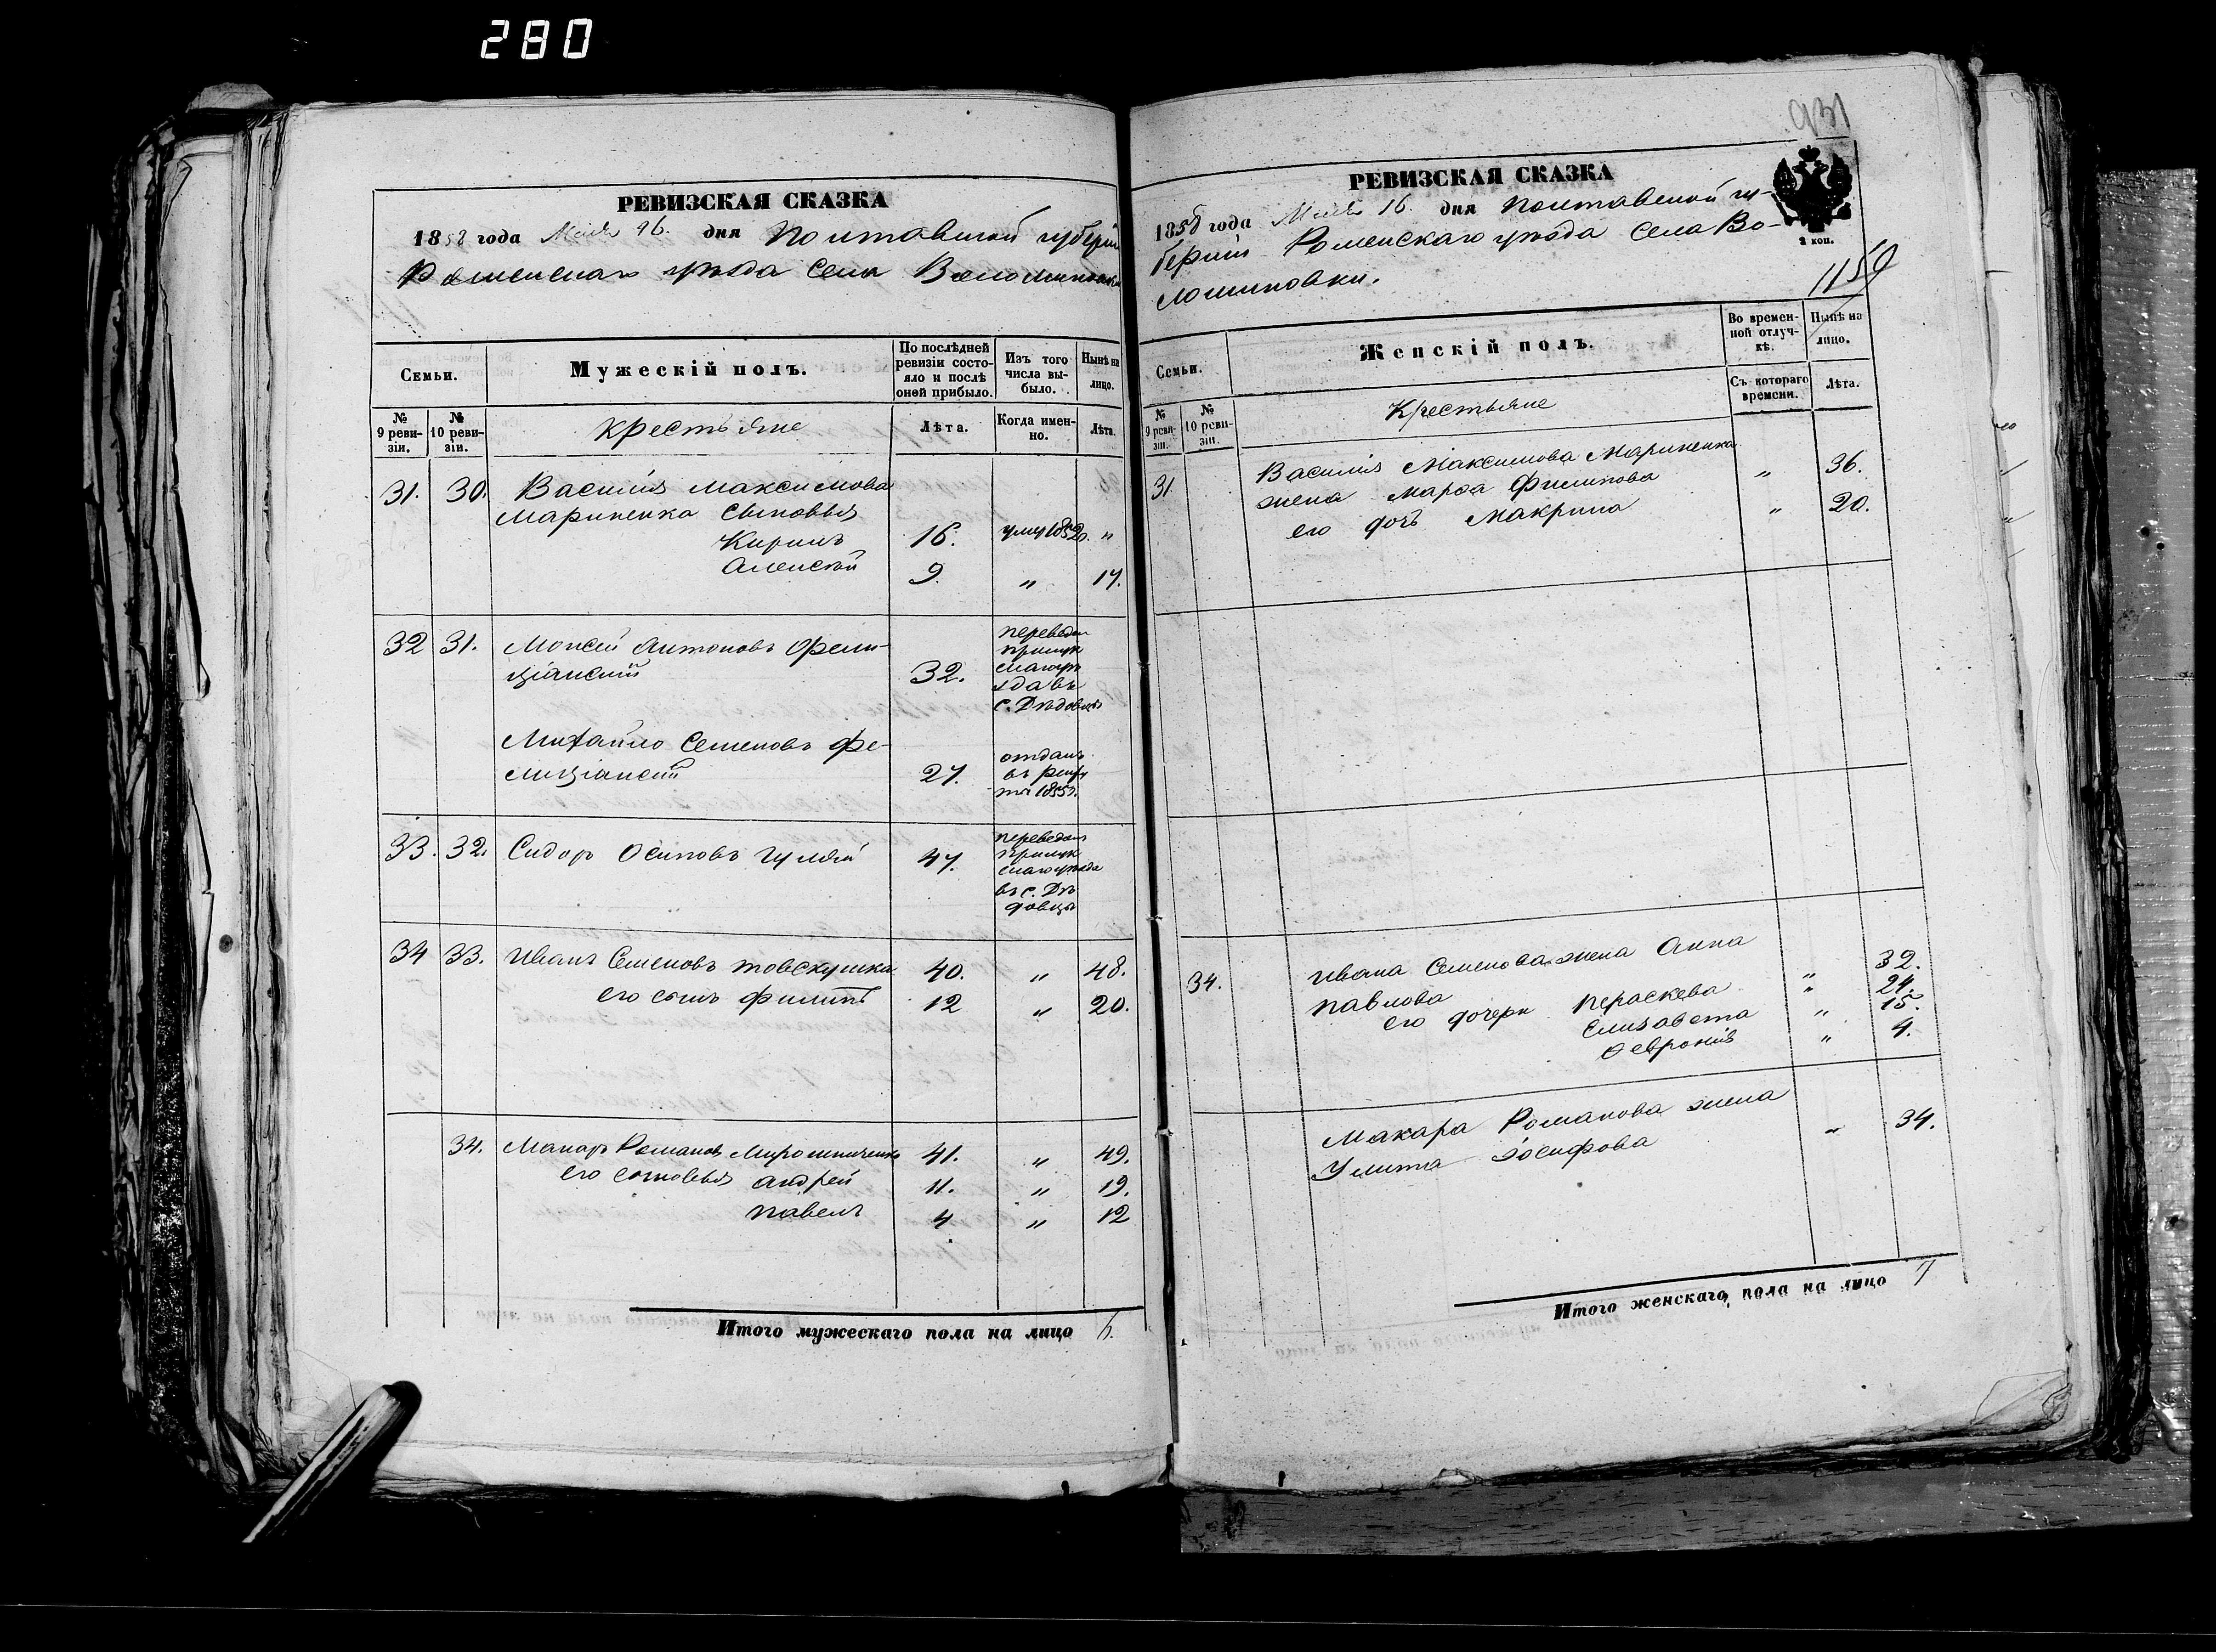 280
РЕВИЗСКАЯ СКАЗКА
1858 года Мая 16. дня Полтавской губерніи
Роменскаго уѣзда Села Волошиновки
Семьи.
Мужескій полъ.
По послѣдней ревизіи состояло и послѣ оной прибыло.
Изъ того числа выбыло.
Нынѣ на лицо.
№ 9 ревизіи.
№ 10 ревизіи.
крестьяне
Лѣта.
Когда именно.
Лѣта.
31. 30. Василія Максимова
Мариненка сыновья
Кирилъ 16. умер 1852г. "
Алексѣй 9. " 17.
32 31. Моисей Антоновъ Фели-
ціанскій 32. переведен Прилукскаго уѣзда въ с. Дѣдовцы
Михайло Семеновъ Фе-
лиціанскій 27. отданъ въ рекруты 1855г.
33. 32. Сидоръ Осиповъ Гуляй 47. переведенъ Прилукскаго уѣзда въ с. Дѣдовцы
34 33. Иванъ Семеновъ Товскушка 40. " 48.
его сынъ Филипъ 12 " 20.
34. Макаръ Романовъ Мирошниченко 41. " 49.
его сыновья Андрей 11. " 19.
Павелъ 4 " 12
Итого мужескаго пола на лицо 6.
931
РЕВИЗСКАЯ СКАЗКА
1858 года Мая 16. дня Полтавской гу-
берніи Роменскаго уѣзда Села Во-
лошиновки.
2 коп.
1159
Семьи.
Женскій полъ.
Во временной отлучкѣ.
Нынѣ на лицо.
№ 9 ревизіи.
№ 10 ревизіи.
Крестьяне
Съ котораго времени.
Лѣта.
31 Василія Максимова Мариненка
жена Марфа Филипова " 36.
его дочь Макрина " 20.
34. Ивана Семенова жена Анна
Павлова " 39.
его дочери Пераскева " 24.
Елизавета " 15.
Ѳевронія " 4.
Макара Романова жена
Улита Іосифова " 34.
Итого женскаго пола на лицо 7